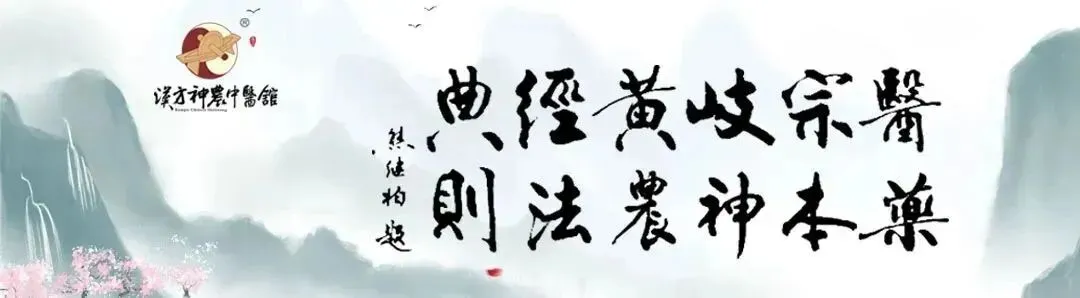 ®
漢方神農中醫館
醫宗岐黃經典
藥本神農法則
熊继柏题